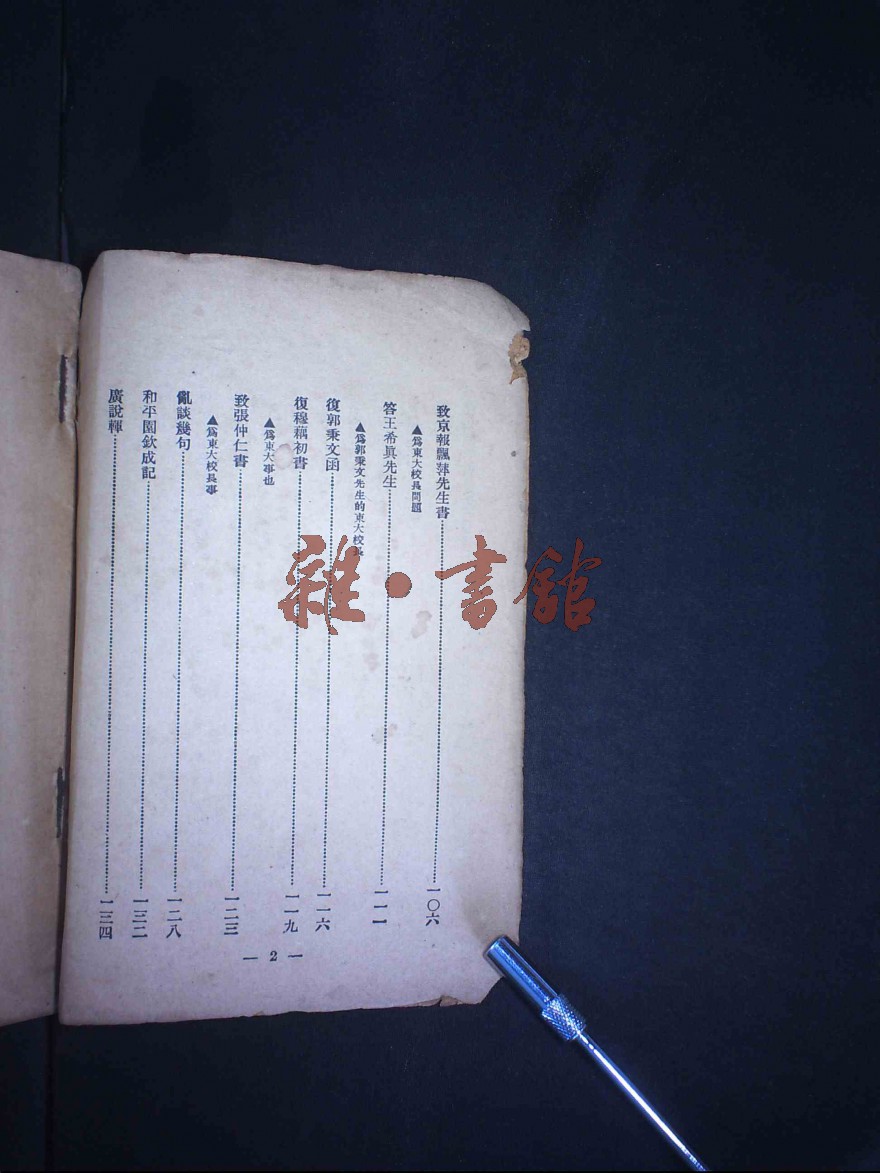 致京報飄萍先生書……一〇六
▲爲東大校長問題
答王希眞先生……一一一
▲爲郭秉文先生的東大校長
復郭秉文函……一一六
復穆藕初書……一一九
▲爲東大事也
致張仲仁書……一二三
▲爲東大校長事
亂談幾句……一二八
和平園欽成記……一三二
廣說輝……一三四
— 2 —
雜·書館